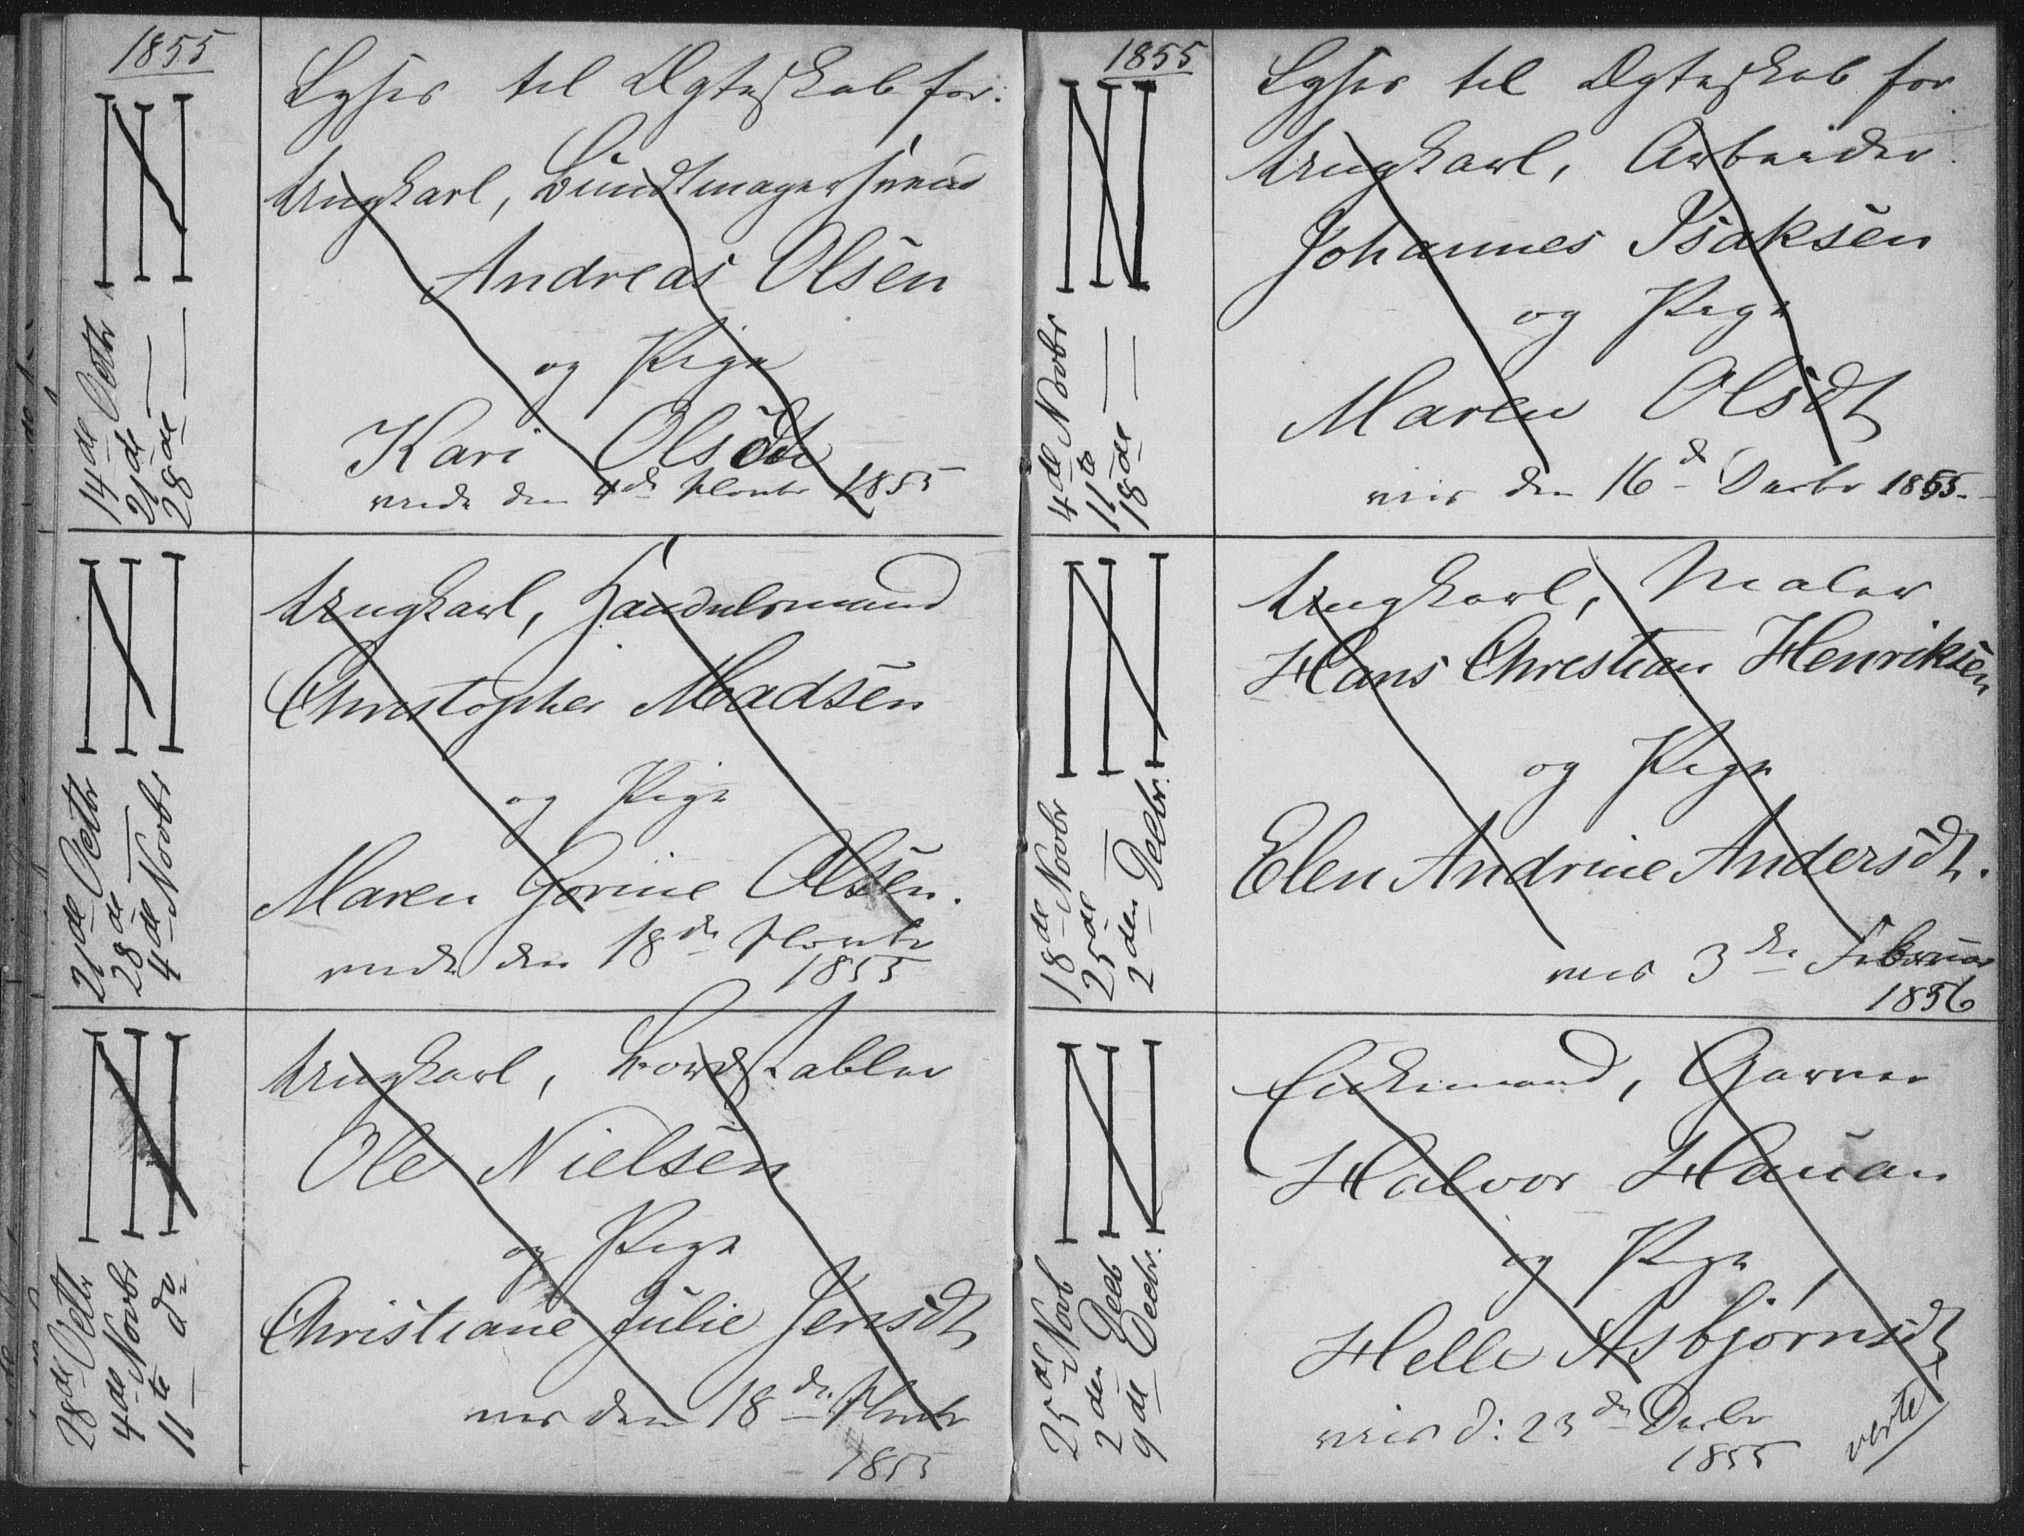 1855
Lyses til Ægteskab for:
Ungkarl, Bundtmagersvend
Andreas Olsen
og Pige
Kari Olsdt
viede den 4de Novbr 1855
14de Octbr
21de —
28de —
Ungkarl, Handelsmand
Christopher Madsen
og Pige
Maren Gorine Olsen.
viede den 18de Novbr
1855
21de Octbr
28de —
4de Novbr
Ungkarl, Bordstabler
Ole Nielsen
og Pige
Christiane Julie Jensdt
vies den 18de Novbr
1855
28de Octbr
4de Novbr
11te do
1855
Lyses til Ægteskab for
Ungkarl, Arbeider.
Johannes Isaksen
og Pige
Maren Olsdt
vies den 16de Decbr 1855.
4de Novbr
11te —
18de —
Ungkarl, Maler
Hans Christian Henriksen
og Pige
Elen Andrine Andersdt.
vies 3de Februar
1856
18de Novbr
25de —
2den Decbr.
Enkemand, Garver
Halvor Hauan
og Pige
Helle Asbjørnsdt
vies d: 23de Decbr
1855
25de Novb
2den Decb
9de Decbr.
verte